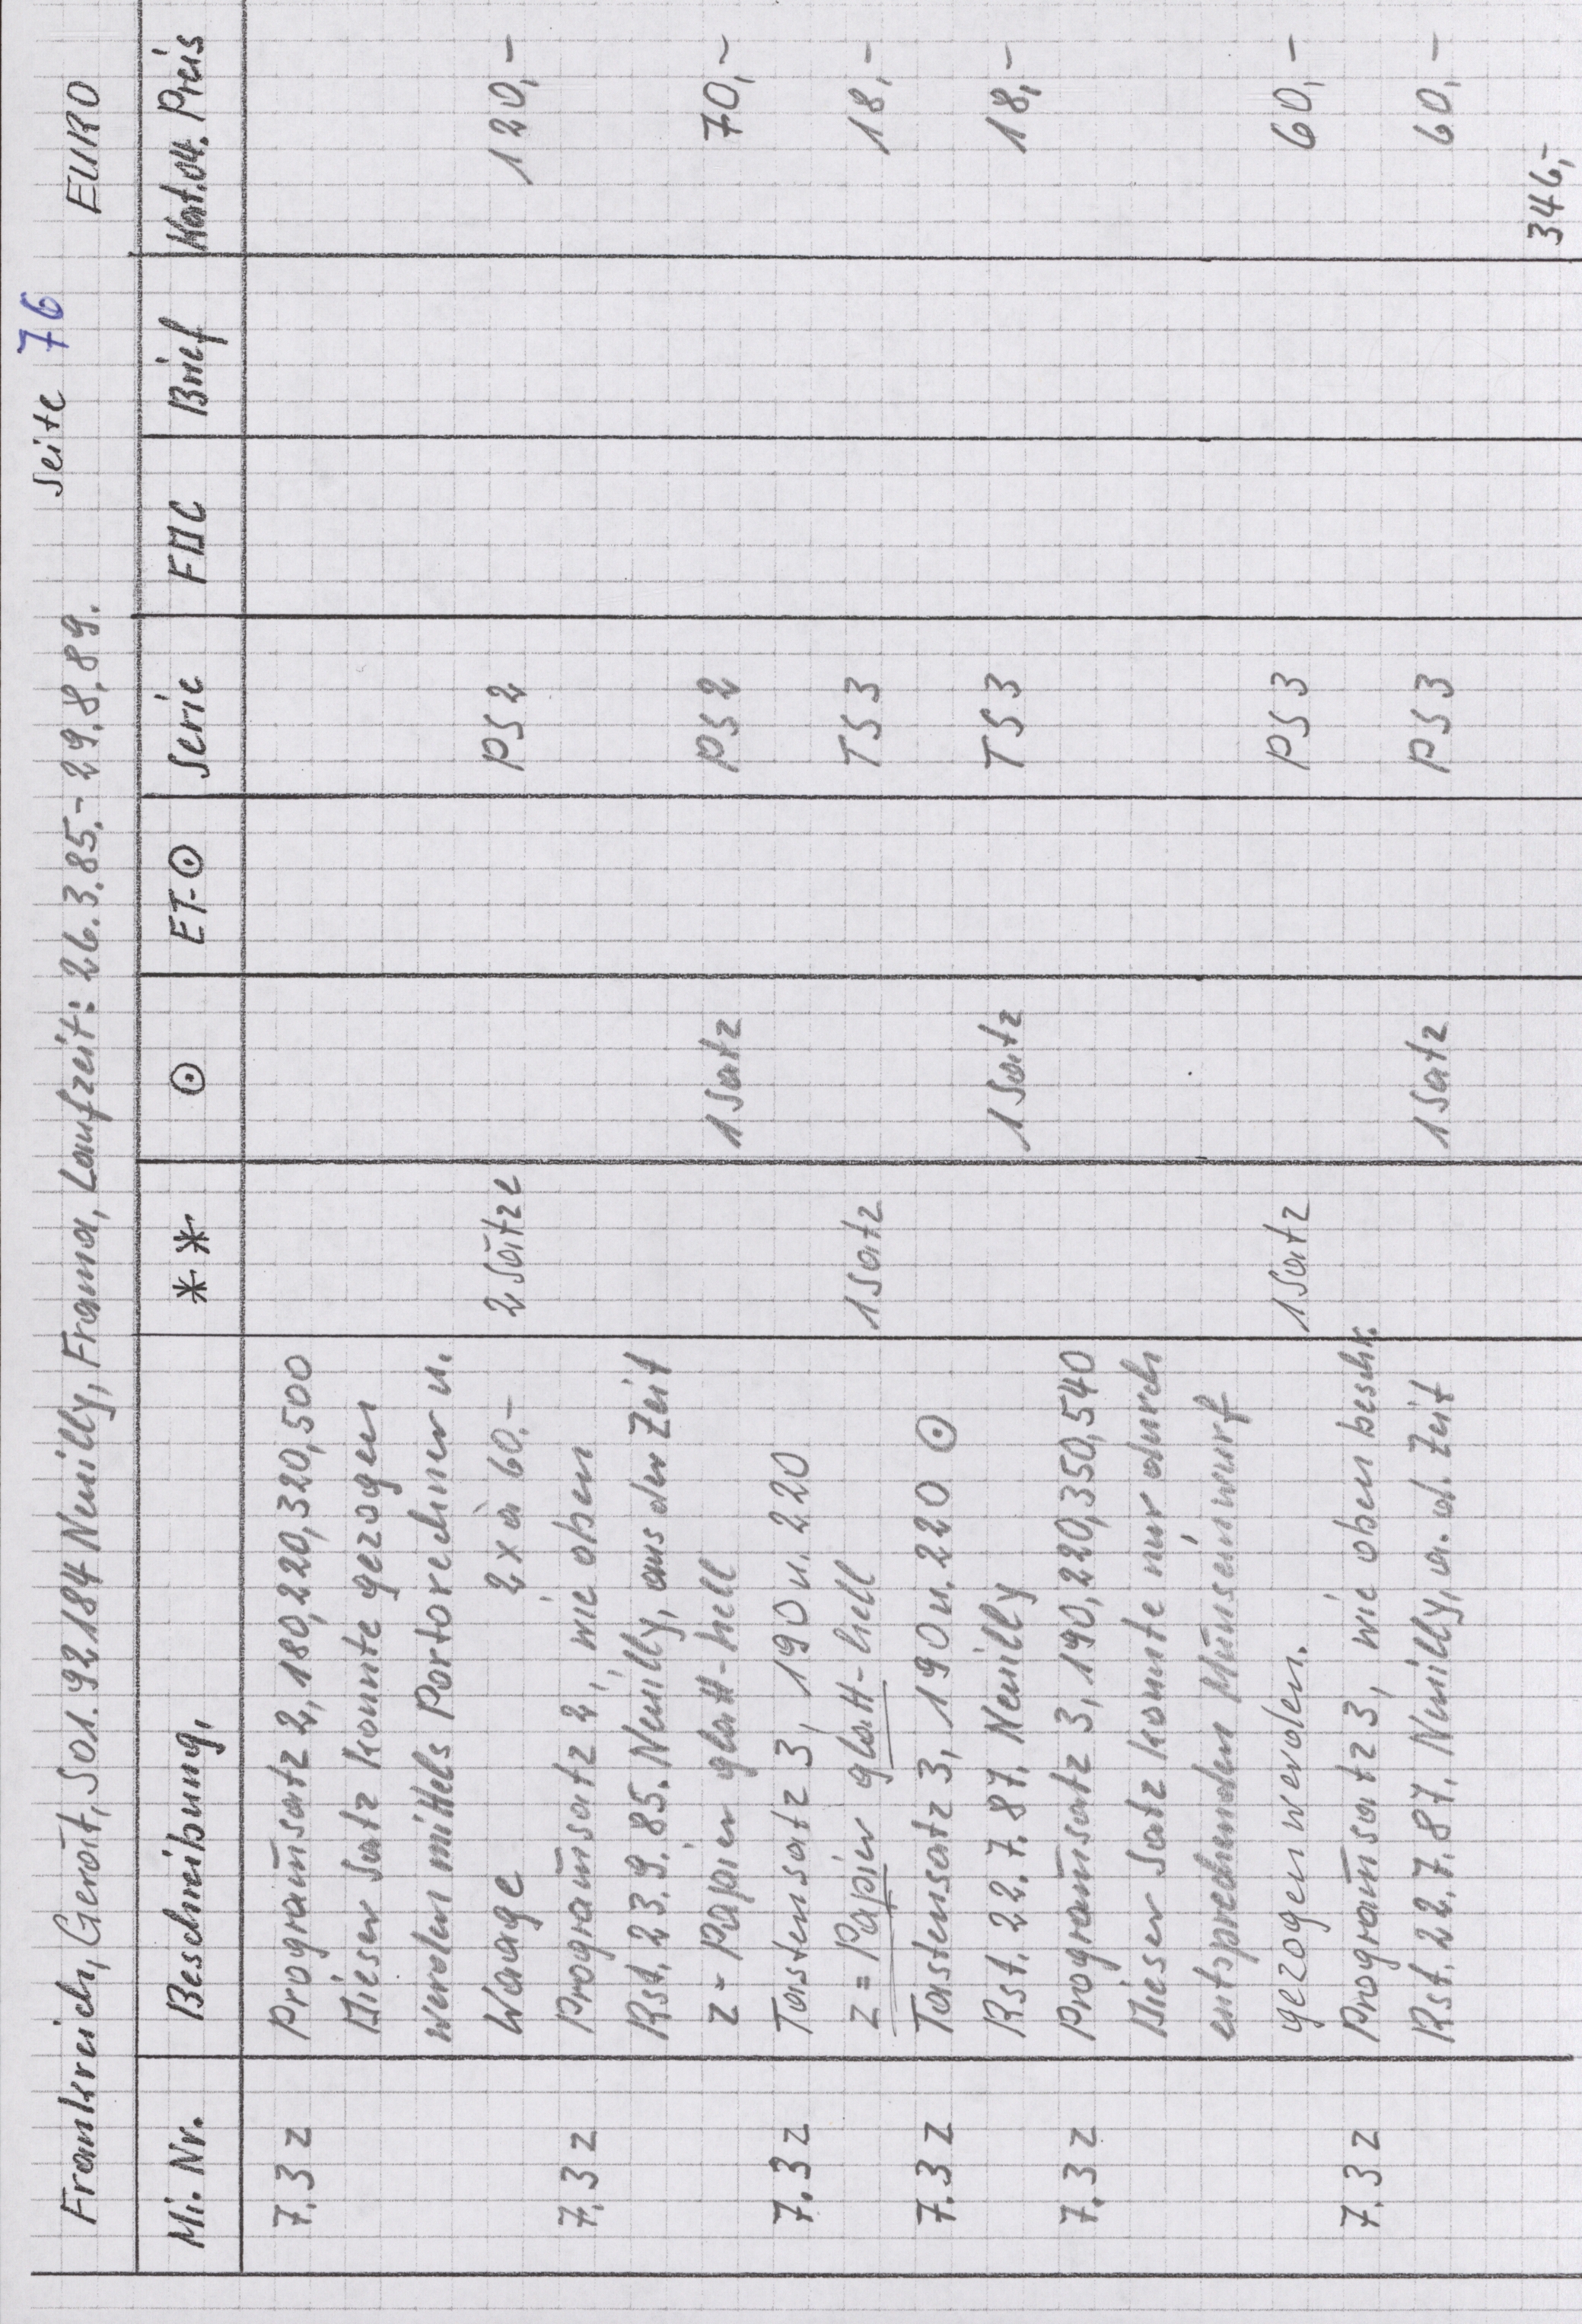 Seite 76
Frankreich, Gerät, 501. 92184 Neuilly, Frama, Laufzeit: 26.3.85.- 29.8.89. EURO
Mi. Nr. Beschreibung, ** ⊙ ET-⊙ Serie FDC Brief Kat.04. Preis
7.3 z Programs̄atz 2, 180,220,320,500
Dieser Satz konnte gezogen
werden mittels Portorechner u.
Waage 2x à 60.- 2 Sätze PS 2 120,-
7.3 z Programs̄atz 2, wie oben
Rst. 23.9.85. Neuilly, aus der Zeit
z = Papier glatt-hell 1 Satz PS 2 70,-
7.3 z Tastensatz 3, 190 u. 220
z = Papier glatt-hell 1 Satz TS 3 18,-
7.3 z Tastensatz 3, 190 u. 220 ⊙
Rst. 22.7.87. Neuilly 1 Satz TS 3 18,-
7.3 z Programs̄atz 3, 190,220,350,540
Dieser Satz konnte nur durch
entsprechenden Münseinwurf
gezogen werden. 1 Satz PS 3 60,-
7.3 z Programs̄atz 3, wie oben beschr.
Rst. 22.7.87. Neuilly, a. d. Zeit 1 Satz PS 3 60,-
346,-